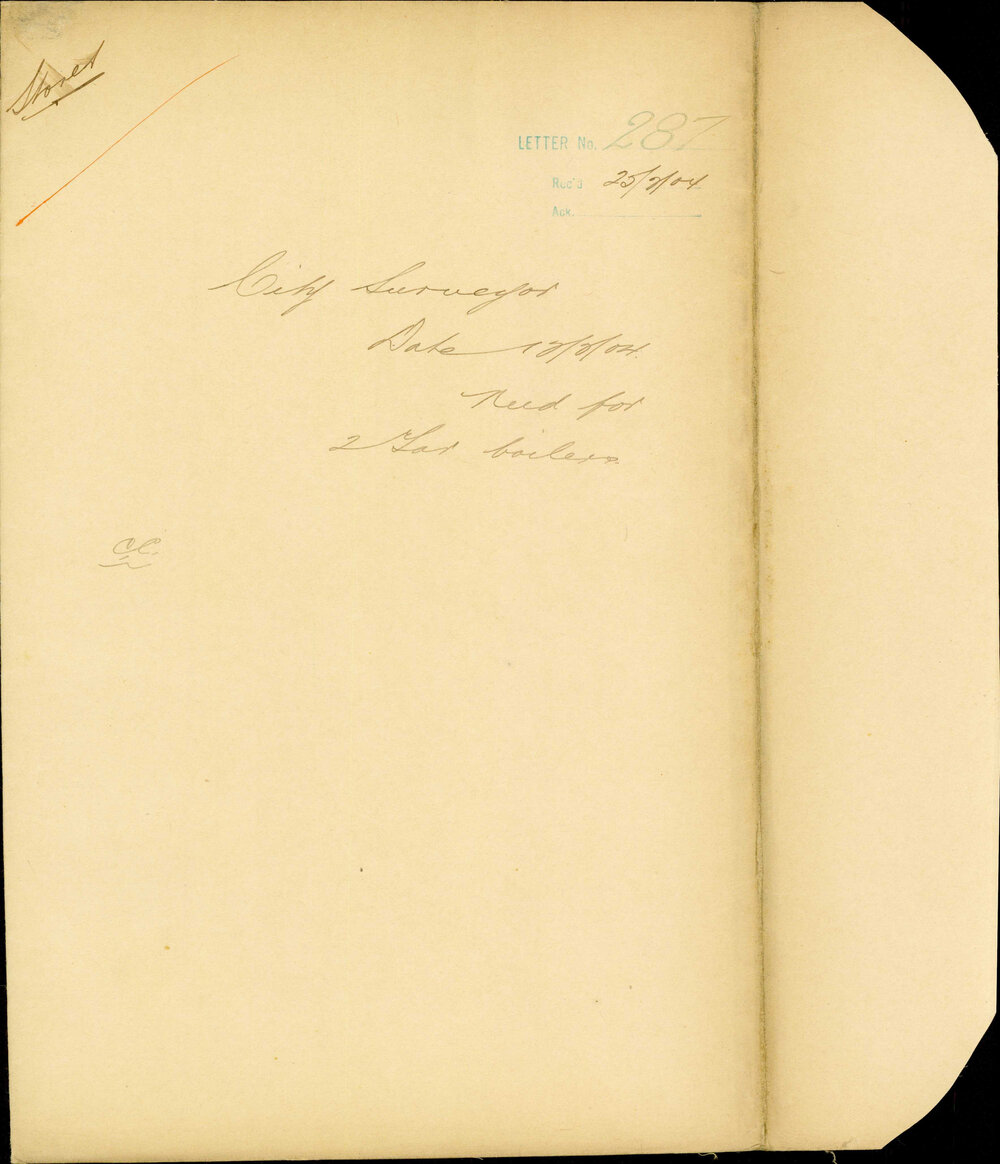 Stores
LETTER No. 287
Rec'd 25/2/04
Ack.
City Surveyor
Date 12/2/04
Need for
2 Tar boilers
CC.